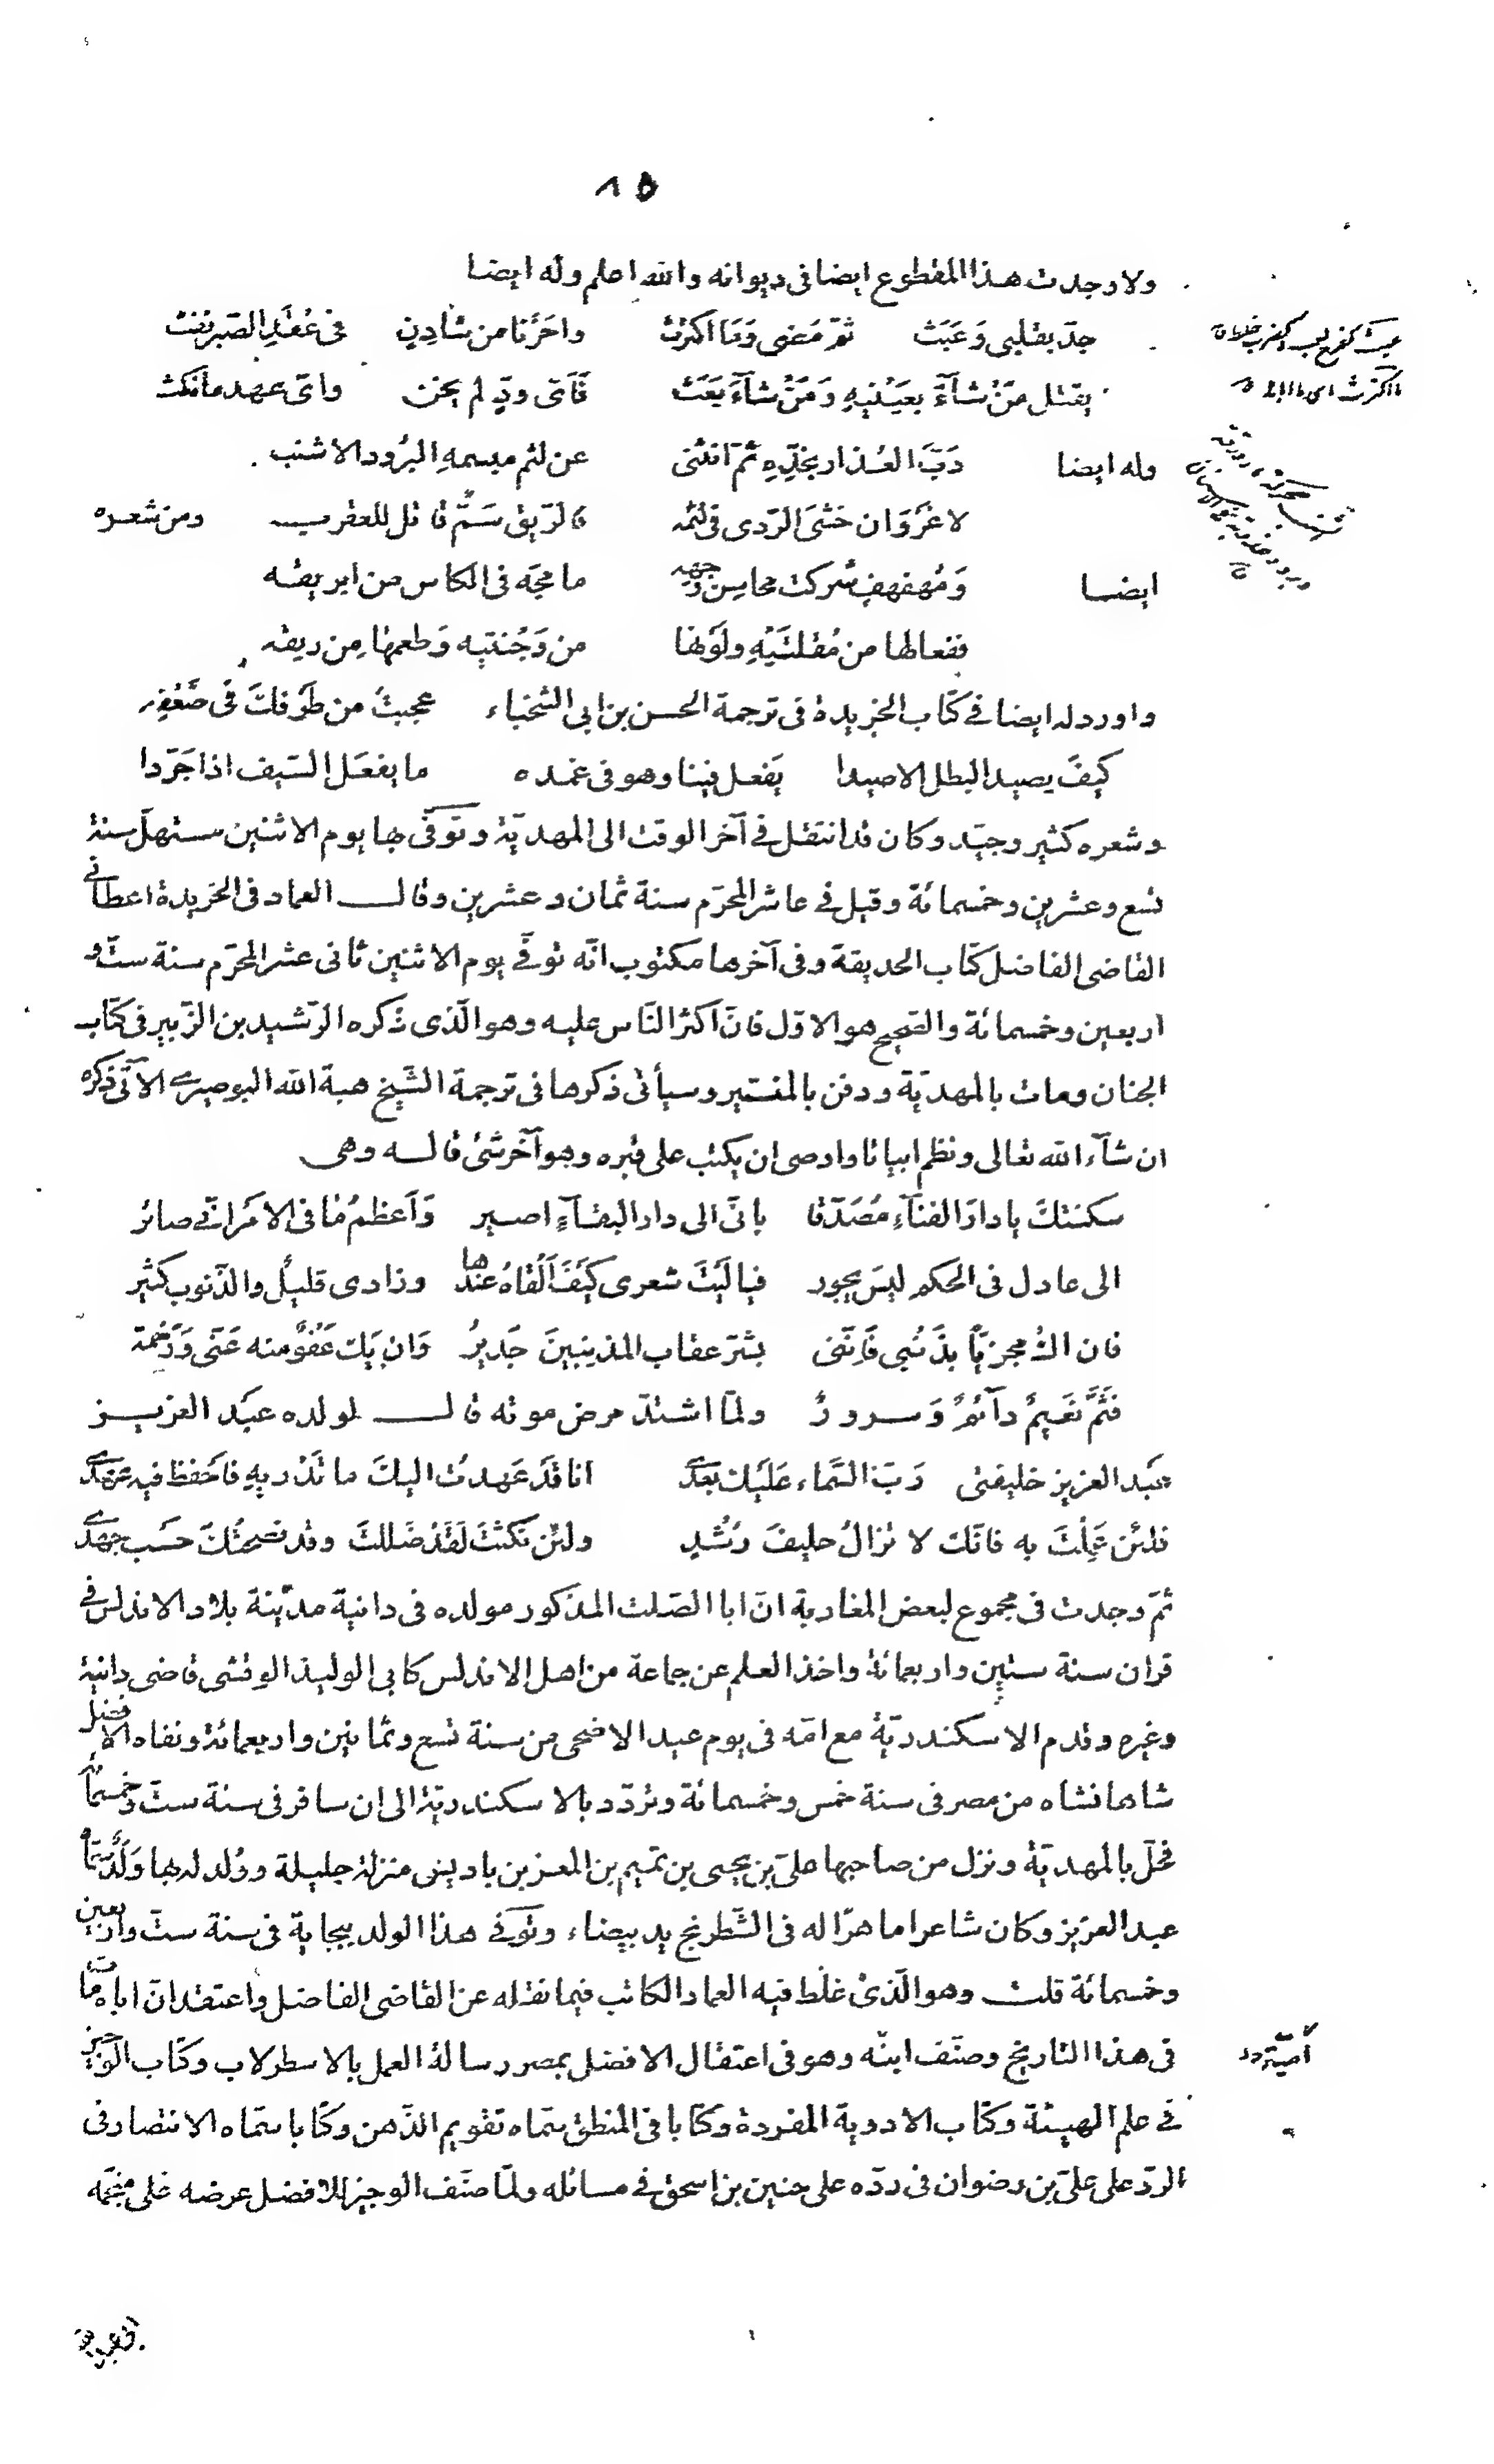 ٨٥
ولا وجدت هذا المقطوع ايضا فى ديوانه والله اعلم وله ايضا
جدّ بقلبى وَعَبَث ثمّ مَضى وَمَا اكترث واحَرَبا من شادِنٍ فى عُقَدِ الصّبر نفث
يقتل مَنْ شآءَ بعَيْنيهِ وَمَنْ شآءَ بَعَث فَآىّ ودٍّ لم يخن واىّ عهد ما نكث
وله ايضا دَبَّ العذار بخدِّهِ ثمّ انثنى عن لثم مبسمهِ البرُود الاشنب
لا غَرْوَ ان خشىَ الرّدى فى لثمه فالرّيق سَمٌّ قاتل للعقرب ومن شعره
ايضا وَمُهفهفٍ شركت محاسن وجهه ما مجّه فى الكاس من ابريقه
ففعالها من مُقلتَيْهِ ولَوْنها من وَجْنتيه وَطعمها مِن ريقه
واورد له ايضا فى كتاب الخريدة فى ترجمة الحسن بن ابى الشخباء عجبتُ من طَرْفكَ فى ضَعْفِه
كيفَ يصيد البطل الاصيدا يَفعل فينا وهو فى غمده ما يفعَل السّيف اذا جَرّدا
وشعره كثير وجيّد وكان قد انتقل فى آخر الوقت الى المهديّة وتَوفّى بها يوم الاثنين مستهلّ سنة
تسع وعشرين وخمسمائة وقيل فى عاشر المحرّم سنة ثمان وعشرين وقال العماد فى الخريدة اعطانى
القاضى الفاضل كتاب الحديقة وفى آخرها مكتوب انّه توفّى يوم الاثنين ثانى عشر المحرّم سنة ستّ و
اربعين وخمسمائة والصّحيح هو الاوّل فانّ اكثر النّاس عليه وهو الّذى ذكره الرّشيد بن الزّبير فى كتاب
الجنان ومات بالمهديّة ودفن بالمنستير وسيأتى ذكرها فى ترجمة الشّيخ هبة الله البوصيرى الآتى ذكره
ان شآء الله تعالى ونظم ابياتا واوصى ان يكتب على قبره وهو آخر شئ قاله وهى
سكنتكَ يا دارَ الفنآءِ مُصَدّقا بانّى الى دار البقآءِ اصير وَاَعظمُ مَا فى الامر انّى صائر
الى عادل فى الحكم ليسَ يجور فيا ليْتَ شعرى كيْفَ اَلْقاهُ عندها وزادى قليلٌ والذّنوب كثير
فان اكُ مجزيّاً بذَنْبى فَاِنّنى بشرّ عقاب المذنبينَ جَديرُ وَان يَك عَفْوٌ منه عَنّى وَرَحْمة
فَثَمَّ نَعيمٌ دآئمٌ وَسرورُ ولمّا اشتدّ مرض موته قال لولده عبَد العزيز
عبَد العزيز خليفتى رَبّ السّماء عَلَيْك بَعدى انا قدَ عَهدتُ اليكَ ما تَدْريهِ فاحْفظ فيه عَهدى
فلئن عَمِلْتَ به فانّك لا تزالُ حليفَ رُشْدِ ولئن نَكَثْتَ لَقَدْ ضَللتَ وقد نصحتُكَ حَسَب جهدى
ثمّ وجدت فى مجموع لبعض المغاربة انّ ابا الصّلت المذكور مولده فى دانية مدينة ببلاد الاندلس فى
قران سنة ستين واربعمائة واخذ العلم عن جماعة من اهل الاندلس كابى الوليد الوقشى قاضى دانية
وغيره وقدم الاسكندريّة مع امّه فى يوم عيد الاضحى من سنة تسع وثمانين واربعمائة ونفاه الافضل
شاهانشاه من مصر فى سنة خمس وخمسمائة وتردّد بالاسكندريّة الى ان سافر فى سنة ستّ وخمسمائة
فحلّ بالمهديّة ونزل من صاحبها علىّ بن يحيى بن تميم بن المعز بن باديس منزلة جليلة ووُلد له بها وَلَدٌ سمّاه
عبد العزيز وكان شاعرا ماهرا له فى الشّطرنج يد بيضاء وتوفّى هذا الولد ببجاية فى سنة ستّ واربعين
وخمسمائة قلت وهو الّذى غلط فيه العماد الكاتب فيما نقله عن القاضى الفاضل واعتقد انّ اباه مات
فى هذا التاريخ وصنّف ابنّه وهو فى اعتقال الافضل بمصر رسالة العمل بالاسطرلاب وكتاب الوجيز
أميّة
فى علم الهيئة وكتاب الادوية المفردة وكتابا فى المنطق سمّاه تقويم الذّهن وكتابا سمّاه الانتصار فى
الردّ على علىّ بن رضوان فى ردّه على حنين بن اسحق فى مسائله ولمّا صنّف الوجيز للافضل عرضه على منجّمه